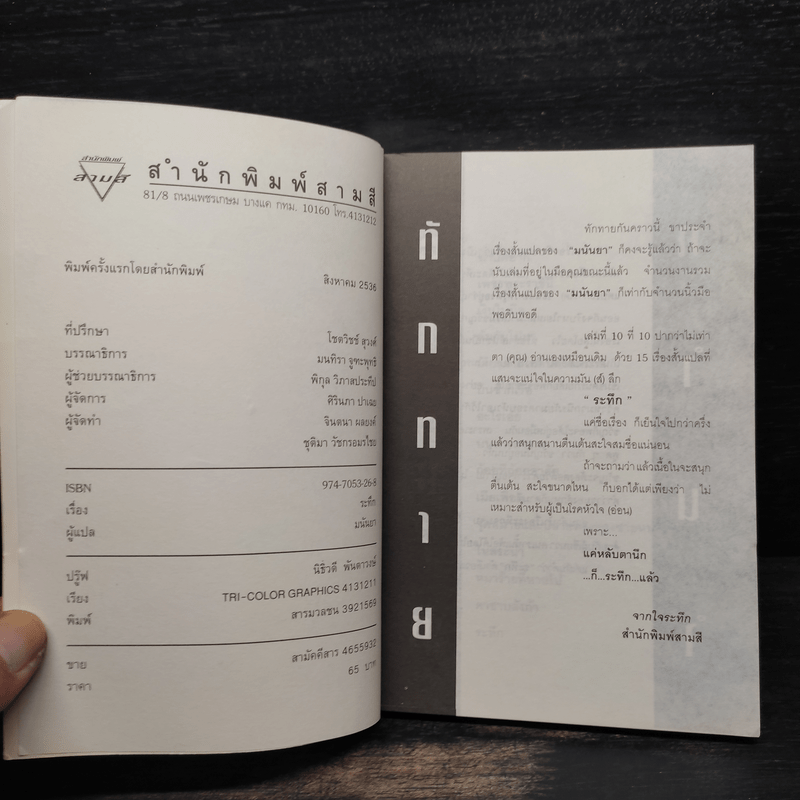 สำนักพิมพ์
สามสี
สำนักพิมพ์สามสี
81/8 ถนนเพชรเกษม บางแค กทม. 10160 โทร.4131212
พิมพ์ครั้งแรกโดยสำนักพิมพ์
สิงหาคม 2536
ที่ปรึกษา โชตวิชช์ สุวงศ์
บรรณาธิการ มนทิรา จูฑะพุทธิ
ผู้ช่วยบรรณาธิการ พิกุล วิภาสประทีป
ผู้จัดการ ศิรินภา ปาเฉย
ผู้จัดทำ จินตนา ผลยงค์
ชุติมา วัชกรอมรไชย
ISBN 974-7053-26-8
เรื่อง ระทึก
ผู้แปล มนันยา
ปรู๊ฟ นิธิวดี พันดาวงษ์
เรียง TRI-COLOR GRAPHICS 4131211
พิมพ์ สารมวลชน 3921569
ขาย สามัคคีสาร 4655932
ราคา 65 บาท
ทักทาย
ทักทายกันคราวนี้ ขาประจำ
เรื่องสั้นแปลของ "มนันยา" ก็คงจะรู้แล้วว่า ถ้าจะ
นับเล่มที่อยู่ในมือคุณขณะนี้แล้ว จำนวนงานรวม
เรื่องสั้นแปลของ "มนันยา" ก็เท่ากับจำนวนนิ้วมือ
พอดิบพอดี
เล่มที่ 10 ที่ 10 ปากว่าไม่เท่า
ตา (คุณ) อ่านเองเหมือนเดิม ด้วย 15 เรื่องสั้นแปลที่
แสนจะแน่ใจในความมัน (ส์) ลึก
" ระทึก "
แค่ชื่อเรื่อง ก็เย็นใจไปกว่าครึ่ง
แล้วว่าสนุกสนานตื่นเต้นสะใจสมชื่อแน่นอน
ถ้าจะถามว่าแล้วเนื้อในจะสนุก
ตื่นเต้น สะใจขนาดไหน ก็บอกได้แต่เพียงว่า ไม่
เหมาะสำหรับผู้เป็นโรคหัวใจ (อ่อน)
เพราะ...
แค่หลับตานึก
...ก็...ระทึก...แล้ว
จากใจระทึก
สำนักพิมพ์สามสี